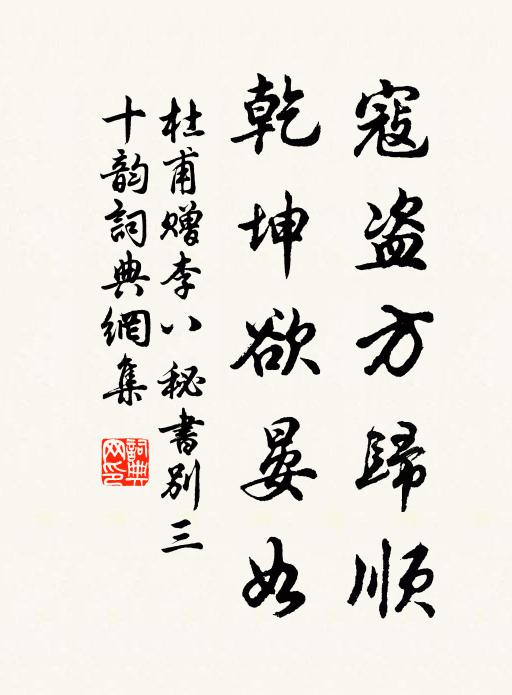 寇盗方歸順
乾坤欲晏如
杜甫贈李八秘書別三
十韵詞典網集
詞典網印